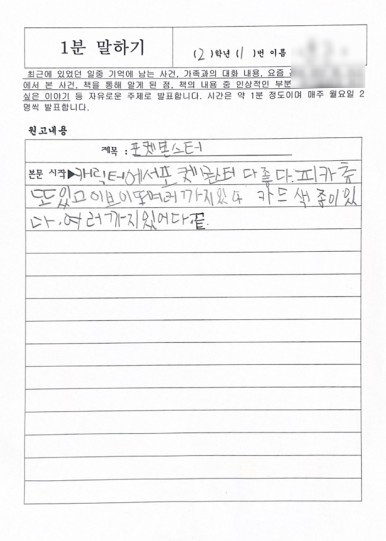 1분 말하기
(2)학년 (1)번 이름
최근에 있었던 일중 기억에 남는 사건, 가족과의 대화 내용, 요즘
에서 본 사건, 책을 통해 알게 된 점, 책의 내용 중 인상적인 부분
싶은 이야기 등 자유로운 주제로 발표합니다. 시간은 약 1분 정도이며 매주 월요일 2
명씩 발표합니다.
원고내용
제목 : 포켓몬스터
본문 시작▶캐릭터에서포켓몬스터 다좋다.피카츄
또있고이브이또여러가지있다 카드색종이있
다.여러가지있어다끝.